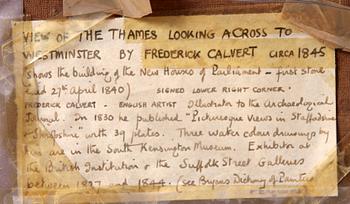 VIEW OF THE THAMES LOOKING ACROSS TO
WESTMINSTER BY FREDERICK CALVERT CIRCA 1845
(shows the building of the New Houses of Parliament - first stone
laid 27th April 1840) SIGNED LOWER RIGHT CORNER.
FREDERICK CALVERT - ENGLISH ARTIST Illustrator to the Archaeological
Journal. In 1830 he published "Picturesque Views in Staffordshire
& Shropshire" with 39 plates. Three water colour drawings by
him are in the South Kensington Museum. Exhibitor at
the British Institution & the Suffolk Street Galleries
between 1827 and 1844. (see Bryans Dictionary of Painters